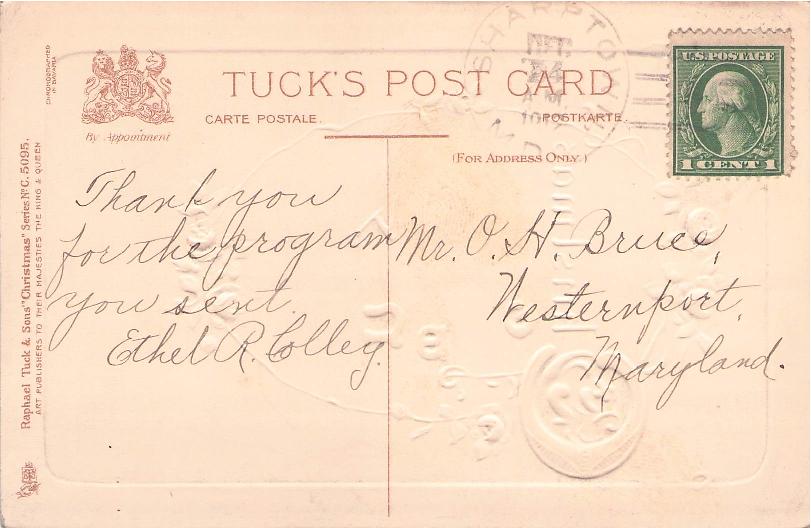 CHROMOGRAPHED
IN BAVARIA
By Appointment
TUCK'S POST CARD
CARTE POSTALE.
POSTKARTE.
(FOR ADDRESS ONLY.)
SHARPTOWN
MD.
OCT.
24
A M
U.S. POSTAGE
1 CENT 1
Raphael Tuck & Sons' "Christmas" Series No C. 5095.
ART PUBLISHERS TO THEIR MAJESTIES THE KING & QUEEN
Thank you
for the program
you sent.
Ethel R. Colley.
Mr. O. H. Bruce,
Westernport,
Maryland.